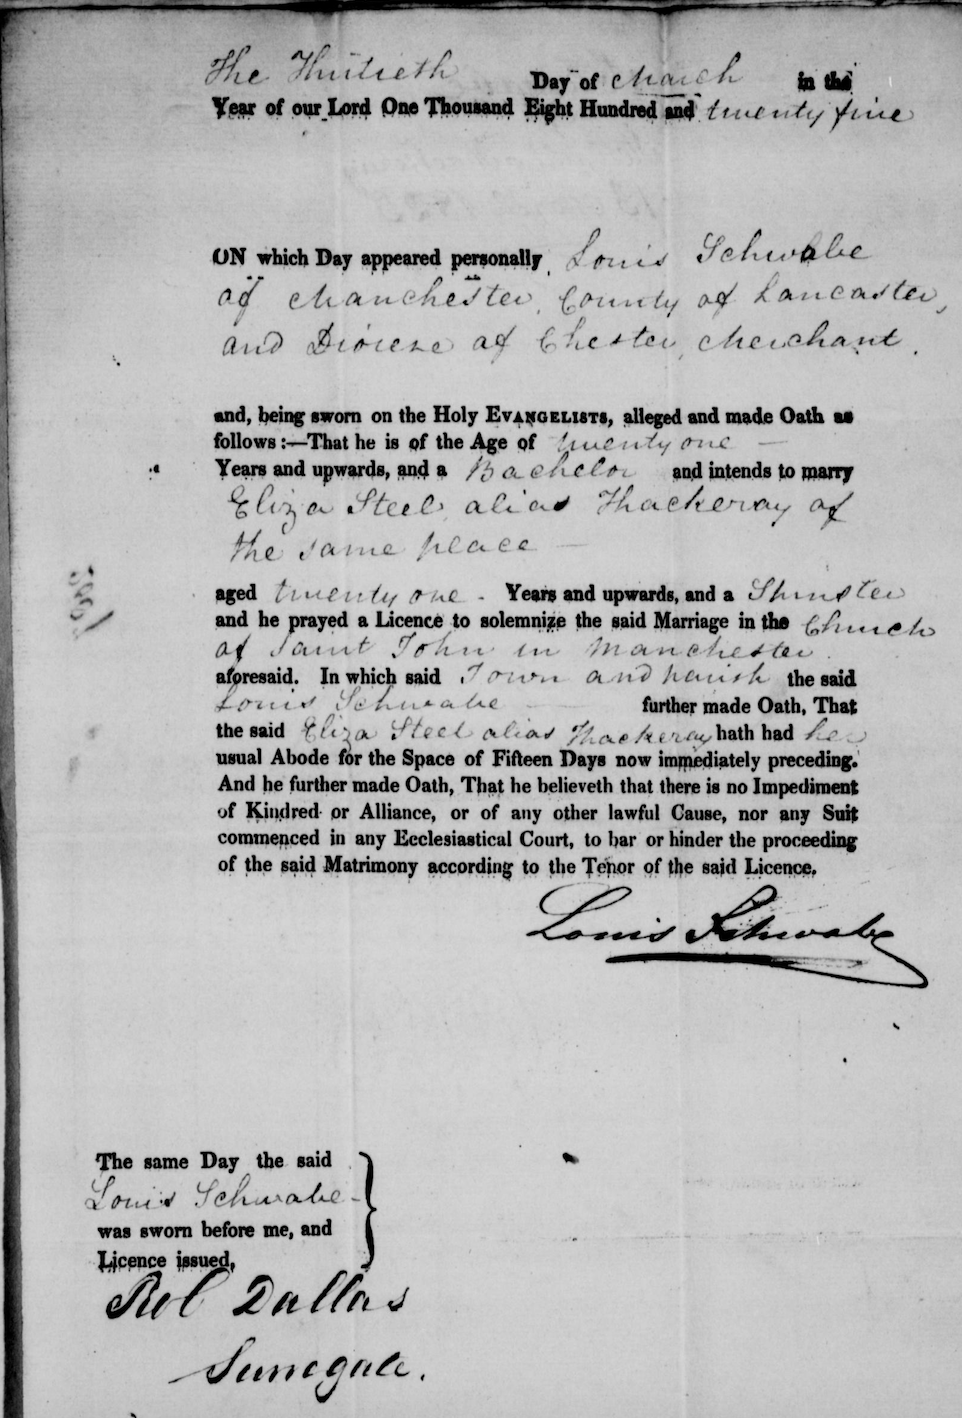 The Thirtieth Day of March in the
Year of our Lord One Thousand Eight Hundred and twenty five
ON which Day appeared personally, Louis Schwabe
of Manchester, County of Lancaster,
and Diocese of Chester, Merchant.
and, being sworn on the Holy EVANGELISTS, alleged and made Oath as
follows:—That he is of the Age of twenty one —
Years and upwards, and a Bachelor and intends to marry
Eliza Steel alias Thackeray of
the same place —
aged twenty one - Years and upwards, and a Spinster
and he prayed a Licence to solemnize the said Marriage in the Church
of Saint John in Manchester
aforesaid. In which said Town and parish the said
Louis Schwabe — further made Oath, That
the said Eliza Steel alias Thackeray hath had her
usual Abode for the Space of Fifteen Days now immediately preceding.
And he further made Oath, That he believeth that there is no Impediment
of Kindred or Alliance, or of any other lawful Cause, nor any Suit
commenced in any Ecclesiastical Court, to bar or hinder the proceeding
of the said Matrimony according to the Tenor of the said Licence.
Louis Schwabe
The same Day the said
Louis Schwabe -
was sworn before me, and
Licence issued,
Rob Dallas
Surrogate.